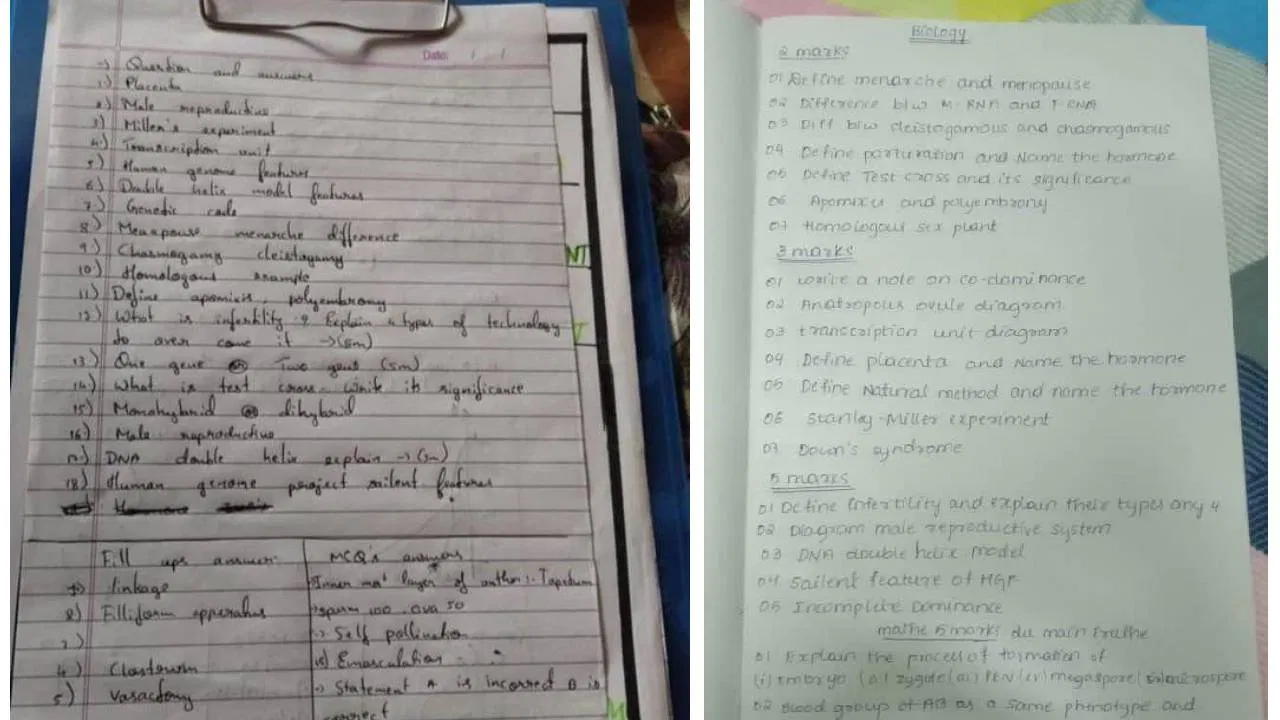 Date: / /
-) Question and answers
1) Placenta
2) Male reproductive
3) Miller's experiment
4) Transcription unit
5) Human genome features
6) Double helix model features
7) Genetic code
8) Menapouse menarche difference
9) Chasmogamy cleistogamy
10) Homologous example
11) Define apomixis, polyembromy
12) What is infertility ? Explain 4 types of technology
to over come it →(5m)
13) One gene or Two gent (5m)
14) What is test cross write its significance
15) Monohybrid or dihybrid
16) Male reproductive
17) DNA double helix explain →(5m)
18) Human genome project silent features
Fill ups answer:
1) linkage
2) Filliform apperatus
3)
4) Clostorum
5) Vasactomy
MCQ's answers
Inner mat layer of anther:- Tapetum
→ sperm 100 . ova 50
→ Self pollination
10) Emasculation
→ Statement A is incorrect B is
correct
NT
Biology
2 marks
01 Define menarche and menopause
02 Difference b/w M-RNA and T-RNA
03 Diff b/w cleistogamous and chasmogamous
04 Define parturation and Name the hormone
05 Define Test cross and its significance
06 Apomixis and polyembrony
07 Homologous sex plant
3 marks
01 write a note on co-dominance
02 Anatropous ovule diagram
03 transcription unit diagram
04 Define placenta and Name the hormone
05 Define Natural method and name the hormone
06 Stanley-Miller experiment
07 Down's syndrome
5 marks
01 Define Infertility and explain their types any 4
02 Diagram male reproductive system
03 DNA double helix model
04 Sailent feature of HGP
05 Incomplete Dominance
mathe 5 marks du main Erathe
01 Explain the process of formation of
(i) embryo (ii) zygote (iii) PEN (iv) megaspore microspore
02 Blood group of AB as a same phenotype and